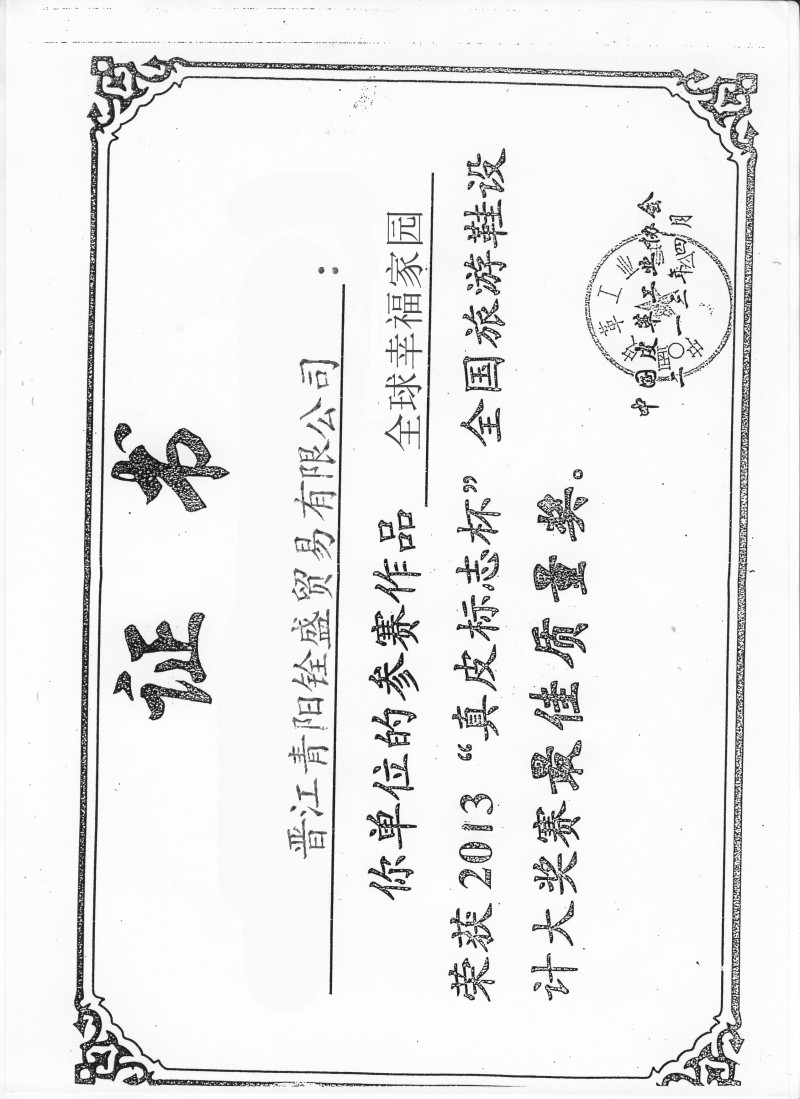 证书
晋江青阳铨盛贸易有限公司：
你单位的参赛作品 全球幸福家园
荣获2013“真皮标志杯”全国旅游鞋设
计大奖赛最佳质量奖。
中国皮革工业协会
二〇一三年四月